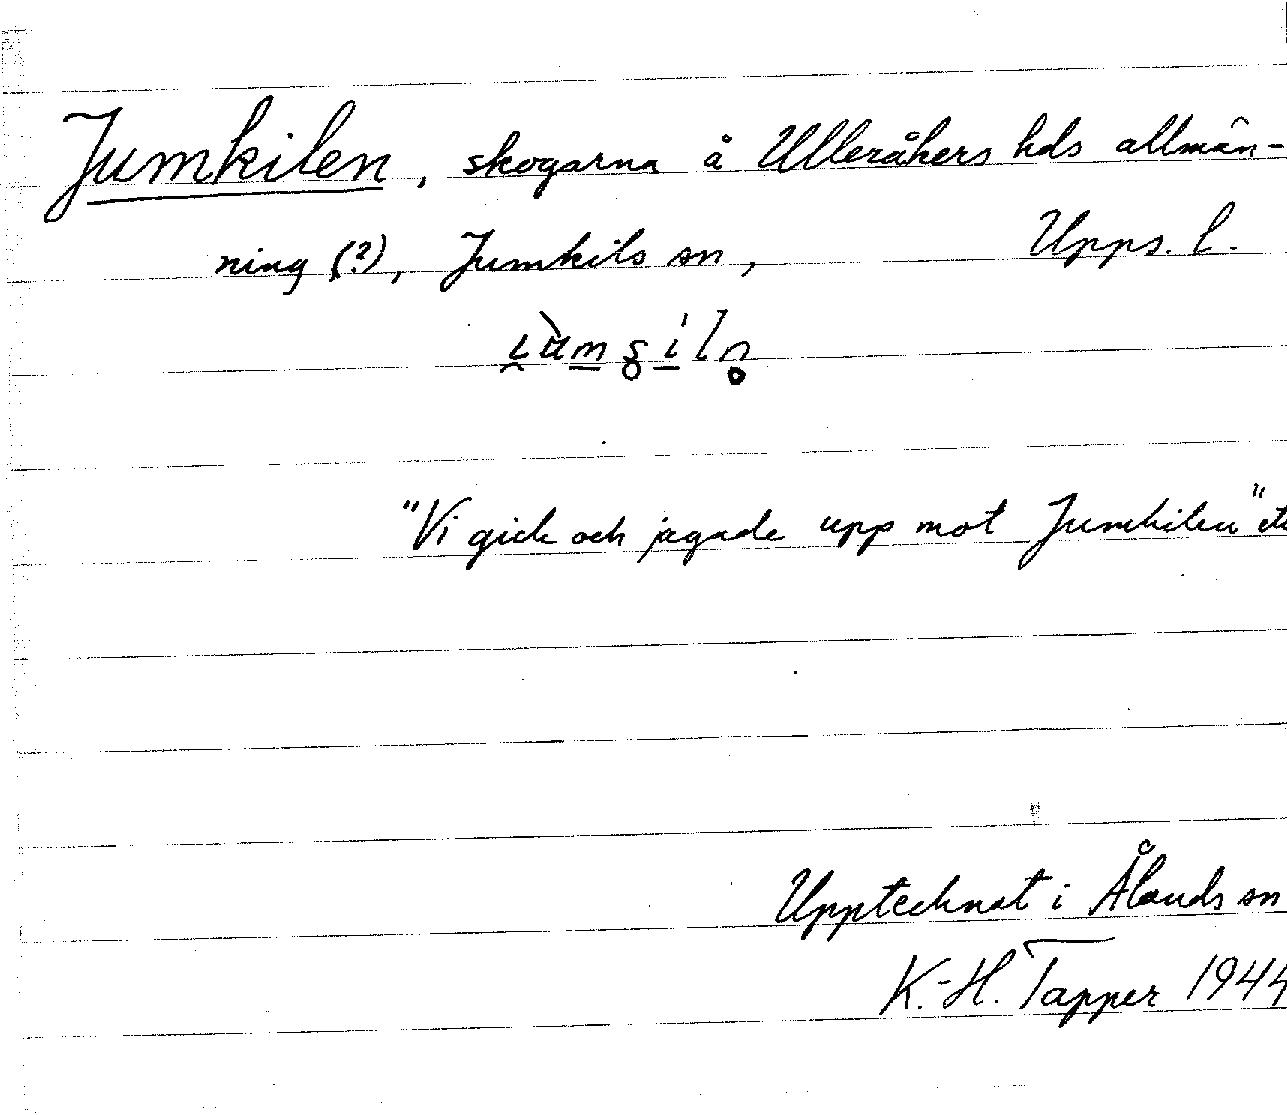 Jumkilen, skogarna å Ulleråkers hds allmän-
ning (?), Jumkils sn, Upps. l.
"Vi gick och jagade upp mot Jumkilen" etc
Upptecknat i Ålands sn
K.-H. Tapper 1944